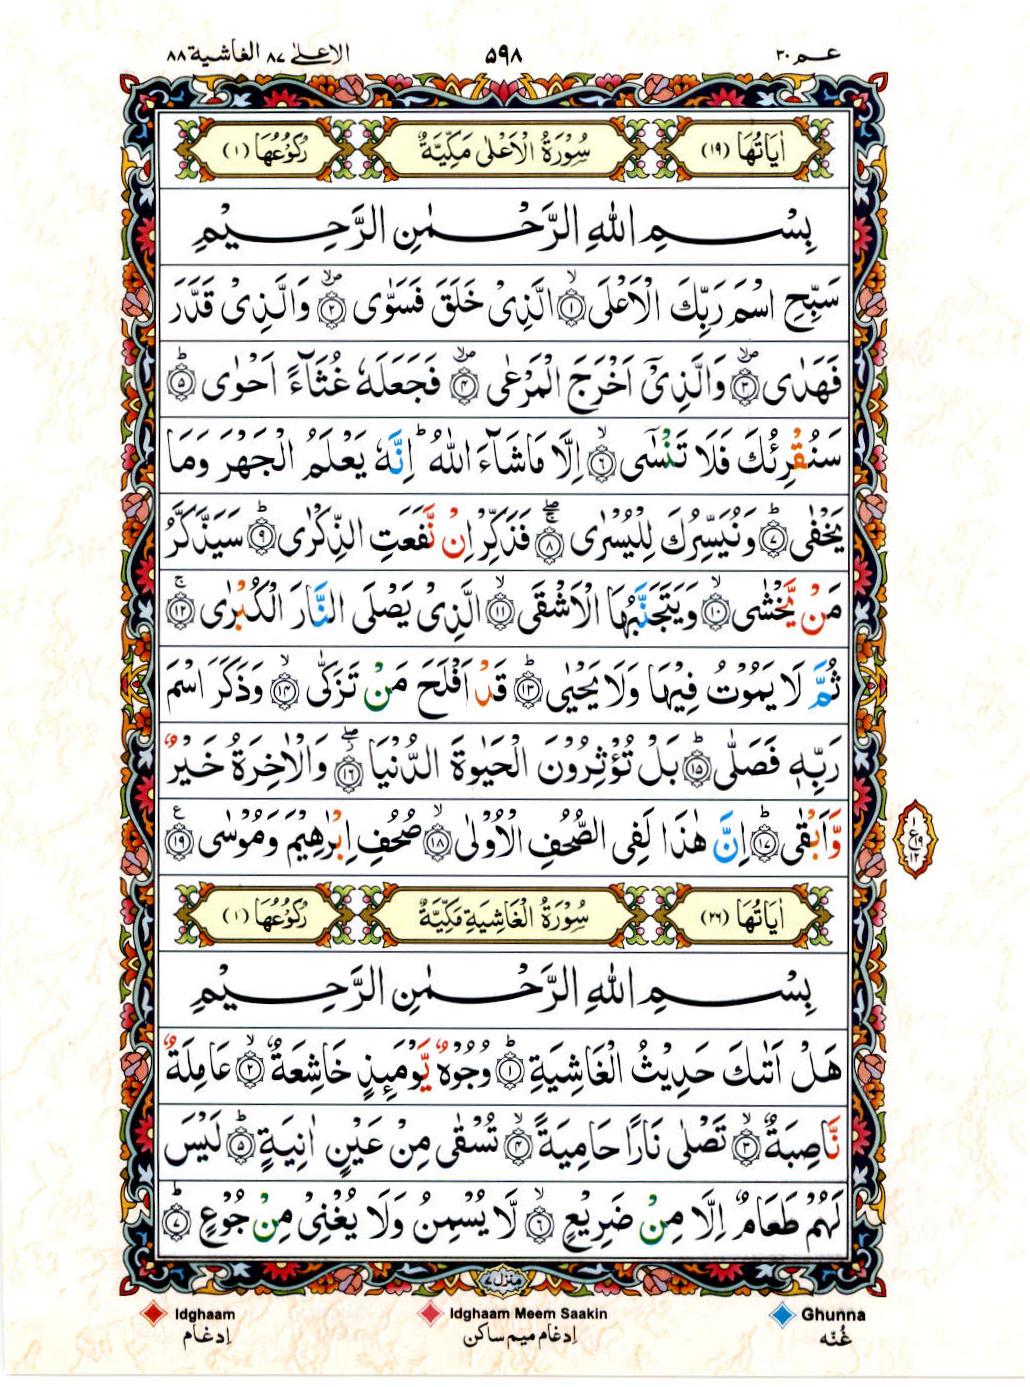 عـم ۳۰ ۵۹۸ الاعلىٰ ۸۷ الغاشية ۸۸
اٰيَاتُهَا (۱۹) سُوْرَةُ الْاَعْلٰى مَكِّيَّةٌ رُكُوْعُهَا (۱)
بِسْمِ اللّٰهِ الرَّحْمٰنِ الرَّحِيْمِ
سَبِّحِ اسْمَ رَبِّكَ الْاَعْلَى ۙ﴿۱﴾ الَّذِيْ خَلَقَ فَسَوّٰى ۪ۙ﴿۲﴾ وَالَّذِيْ قَدَّرَ
فَهَدٰى ۪ۙ﴿۳﴾ وَالَّذِيْۤ اَخْرَجَ الْمَرْعٰى ۪ۙ﴿۴﴾ فَجَعَلَهٗ غُثَآءً اَحْوٰى ؕ﴿۵﴾
سَنُقْرِئُكَ فَلَا تَنْسٰۤى ۙ﴿۶﴾ اِلَّا مَا شَآءَ اللّٰهُ ؕ اِنَّهٗ يَعْلَمُ الْجَهْرَ وَمَا
يَخْفٰى ؕ﴿۷﴾ وَنُيَسِّرُكَ لِلْيُسْرٰى ۚۖ﴿۸﴾ فَذَكِّرْ اِنْ نَّفَعَتِ الذِّكْرٰى ؕ﴿۹﴾ سَيَذَّكَّرُ
مَنْ يَّخْشٰى ۙ﴿۱۰﴾ وَيَتَجَنَّبُهَا الْاَشْقَى ۙ﴿۱۱﴾ الَّذِيْ يَصْلَى النَّارَ الْكُبْرٰى ۚ﴿۱۲﴾
ثُمَّ لَا يَمُوْتُ فِيْهَا وَلَا يَحْيٰى ؕ﴿۱۳﴾ قَدْ اَفْلَحَ مَنْ تَزَكّٰى ۙ﴿۱۴﴾ وَذَكَرَ اسْمَ
رَبِّهٖ فَصَلّٰى ؕ﴿۱۵﴾ بَلْ تُؤْثِرُوْنَ الْحَيٰوةَ الدُّنْيَا ۖ﴿۱۶﴾ وَالْاٰخِرَةُ خَيْرٌ
وَّاَبْقٰى ؕ﴿۱۷﴾ اِنَّ هٰذَا لَفِى الصُّحُفِ الْاُوْلٰى ۙ﴿۱۸﴾ صُحُفِ اِبْرٰهِيْمَ وَمُوْسٰى ﴿۱۹﴾ ع
۱ ع ۱۹ ۱۲
اٰيَاتُهَا (۲۶) سُوْرَةُ الْغَاشِيَةِ مَكِّيَّةٌ رُكُوْعُهَا (۱)
بِسْمِ اللّٰهِ الرَّحْمٰنِ الرَّحِيْمِ
هَلْ اَتٰىكَ حَدِيْثُ الْغَاشِيَةِ ؕ﴿۱﴾ وُجُوْهٌ يَّوْمَىِٕذٍ خَاشِعَةٌ ۙ﴿۲﴾ عَامِلَةٌ
نَّاصِبَةٌ ۙ﴿۳﴾ تَصْلٰى نَارًا حَامِيَةً ۙ﴿۴﴾ تُسْقٰى مِنْ عَيْنٍ اٰنِيَةٍ ؕ﴿۵﴾ لَيْسَ
لَهُمْ طَعَامٌ اِلَّا مِنْ ضَرِيْعٍ ۙ﴿۶﴾ لَّا يُسْمِنُ وَلَا يُغْنِيْ مِنْ جُوْعٍ ؕ﴿۷﴾
منزل ۷
Idghaam Idghaam Meem Saakin Ghunna
اِدغام اِدغام ميم ساكن غُنّه